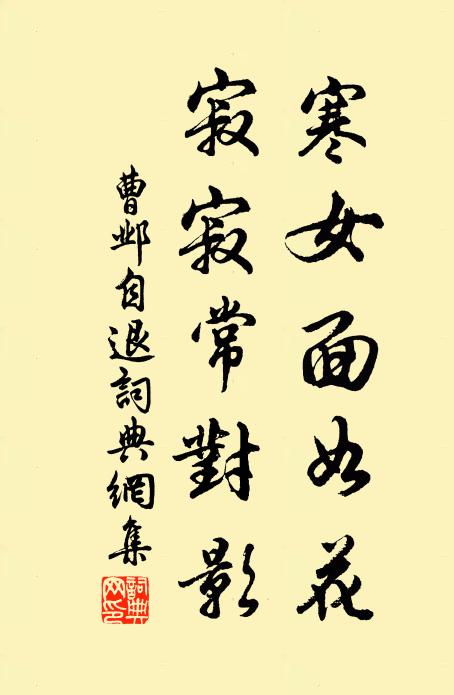 寒女面如花
寂寂常對影
曹邺自退詞典網集
詞典
网印